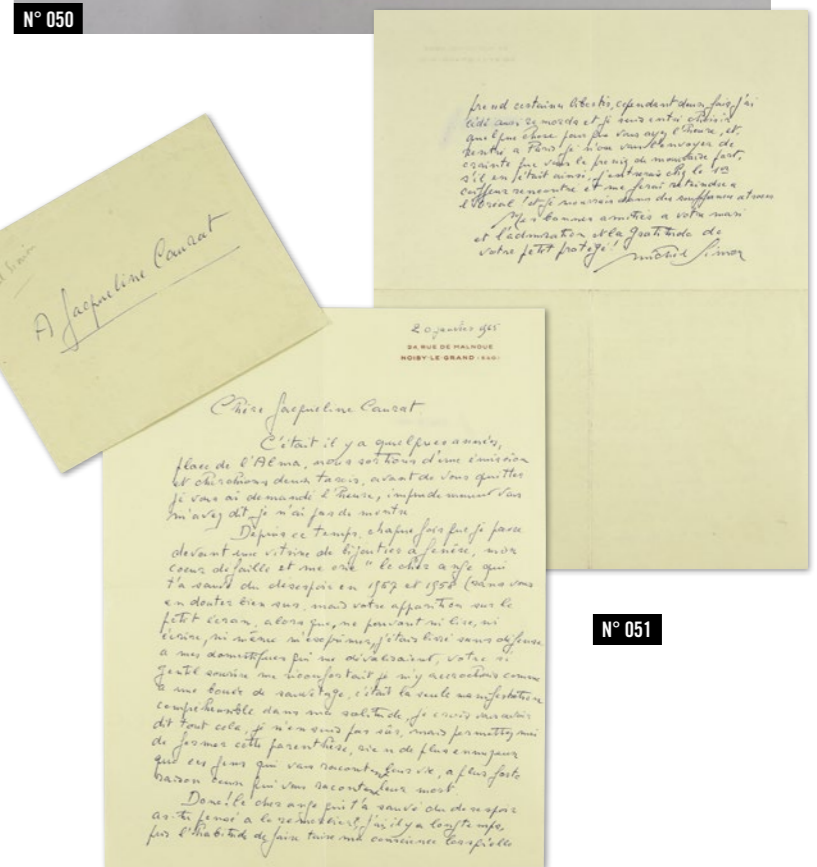 N° 050
A Jacqueline Caurat
20 janvier 1965
24, RUE DE MALNOUE
NOISY-LE-GRAND (S&O)
Chère Jacqueline Caurat
C'était il y a quelques années,
place de l'Alma, nous sortions d'une émission
et cherchions deux taxis, avant de vous quitter
je vous ai demandé l'heure, imprudemment vous
m'avez dit, je n'ai pas de montre
Depuis ce temps, chaque fois que je passe
devant une vitrine de bijoutier à Genève, mon
coeur défaille et me crie "le cher ange qui
t'a sauvé du désespoir en 1957 et 1958 (sans vous
en douter bien sur, mais votre apparition sur le
petit écran, alors que, ne pouvant ni lire, ni
écrire, ni même m'exprimer, j'étais livré sans défense
a mes domestiques qui me dévalisaient, votre si
gentil sourire me réconfortait je m'y accrochais comme
a une bouée de sauvetage, c'était la seule manifestation
compréhensible dans ma solitude, je crois vous avoir
dit tout cela, je n'en suis pas sûr, mais permettez moi
de fermer cette parenthèse, rien de plus ennuyeux
que ces gens qui vous racontent leur vie, a plus forte
raison ceux qui vous racontent leur mort.
Donc! le cher ange qui t'a sauvé du désespoir
as-tu pensé a le remercier? j'ai, il y a longtemps,
pris l'habitude de faire taire ma conscience lorsqu'elle
prend certaines libertés, cependant deux fois, j'ai
cédé aussi remords et je suis entré choisir
quelque chose pour que vous ayez l'heure, et,
rentré a Paris je n'ose vous l'envoyer de
crainte que vous le preniez de mauvaise part,
s'il en était ainsi, j'entrerais chez le 1er
coiffeur rencontré et me ferai reteindre a
l'Oréal! et je mourrais dans des souffrances atroces
Mes bonnes amitiés a votre mari
et l'admiration et la gratitude de
votre petit protégé!
Michel Simon
N° 051